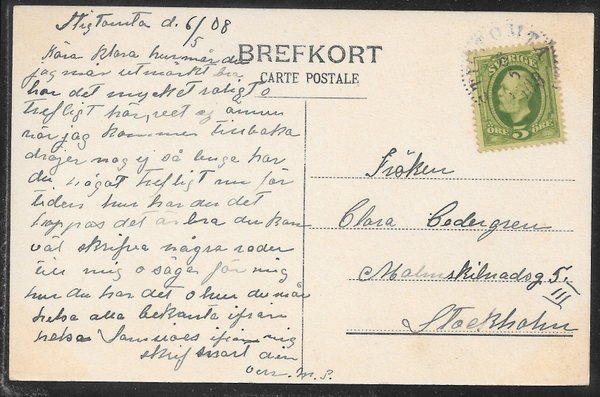 Stigtomta d. 6/5 08
BREFKORT
CARTE POSTALE
SVERIGE
5
ÖRE ÖRE
Kära Klara hur mår du
jag mår utmärkt bra
har det mycket roligt o
trefligt här, vet ej ännu
när jag kommer tillbaka
dröjer nog ej så länge har
du något trefligt nu för
tiden hur har du det
hoppas det är bra du kan
väl skrifva några rader
till mig o säga för mig
hur du har det o hur du mår
helsa alla bekanta ifrån
helsa ifrån mig
skrif snart din
vän. M. P.
Fröken
Clara Cedergren
Malmskilnadsg 5, III
Stockholm